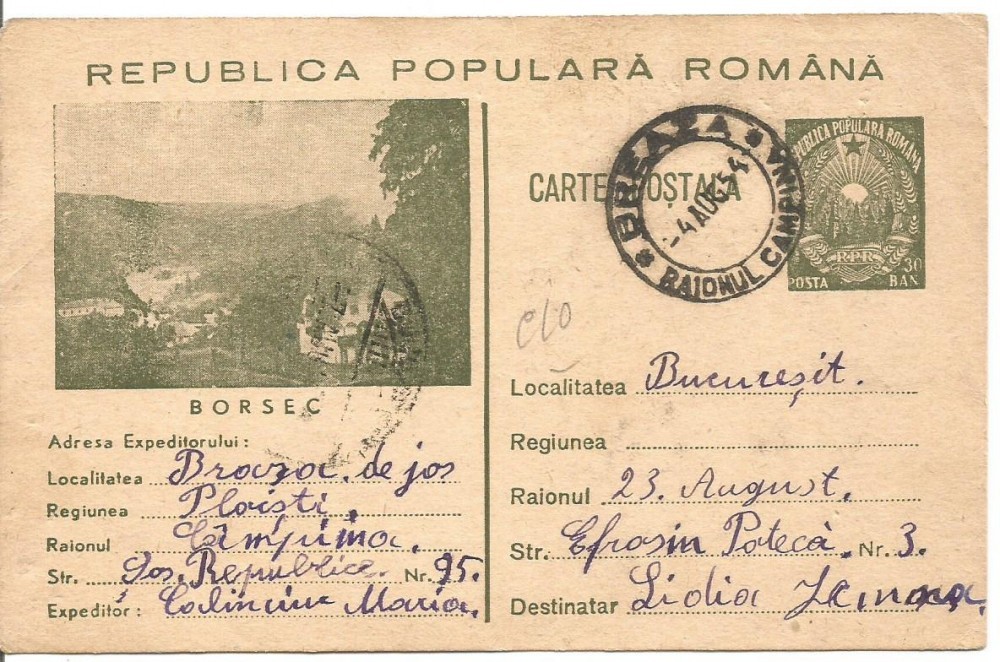 REPUBLICA POPULARĂ ROMÂNĂ
BORSEC
Adresa Expeditorului:
Localitatea Breaza de jos
Regiunea Ploiști
Raionul Câmpina.
Str. Șos. Republicii Nr. 95.
Expeditor: Maria.
CARTE POȘTALĂ
BREAZA * RAIONUL CAMPINA *
-4 AUG 54
REPUBLICA POPULARA ROMÂNĂ
RPR
POSTA 30 BANI
c/o
Localitatea Bucureșit.
Regiunea
Raionul 23. August.
Str. Efrosin Potecà. Nr. 3.
Destinatar Lidia